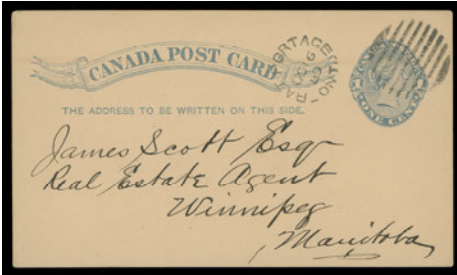 CANADA POST CARD
THE ADDRESS TO BE WRITTEN ON THIS SIDE.
ONE CENT
James Scott Esqr
Real Estate Agent
Winnipeg
Manitoba